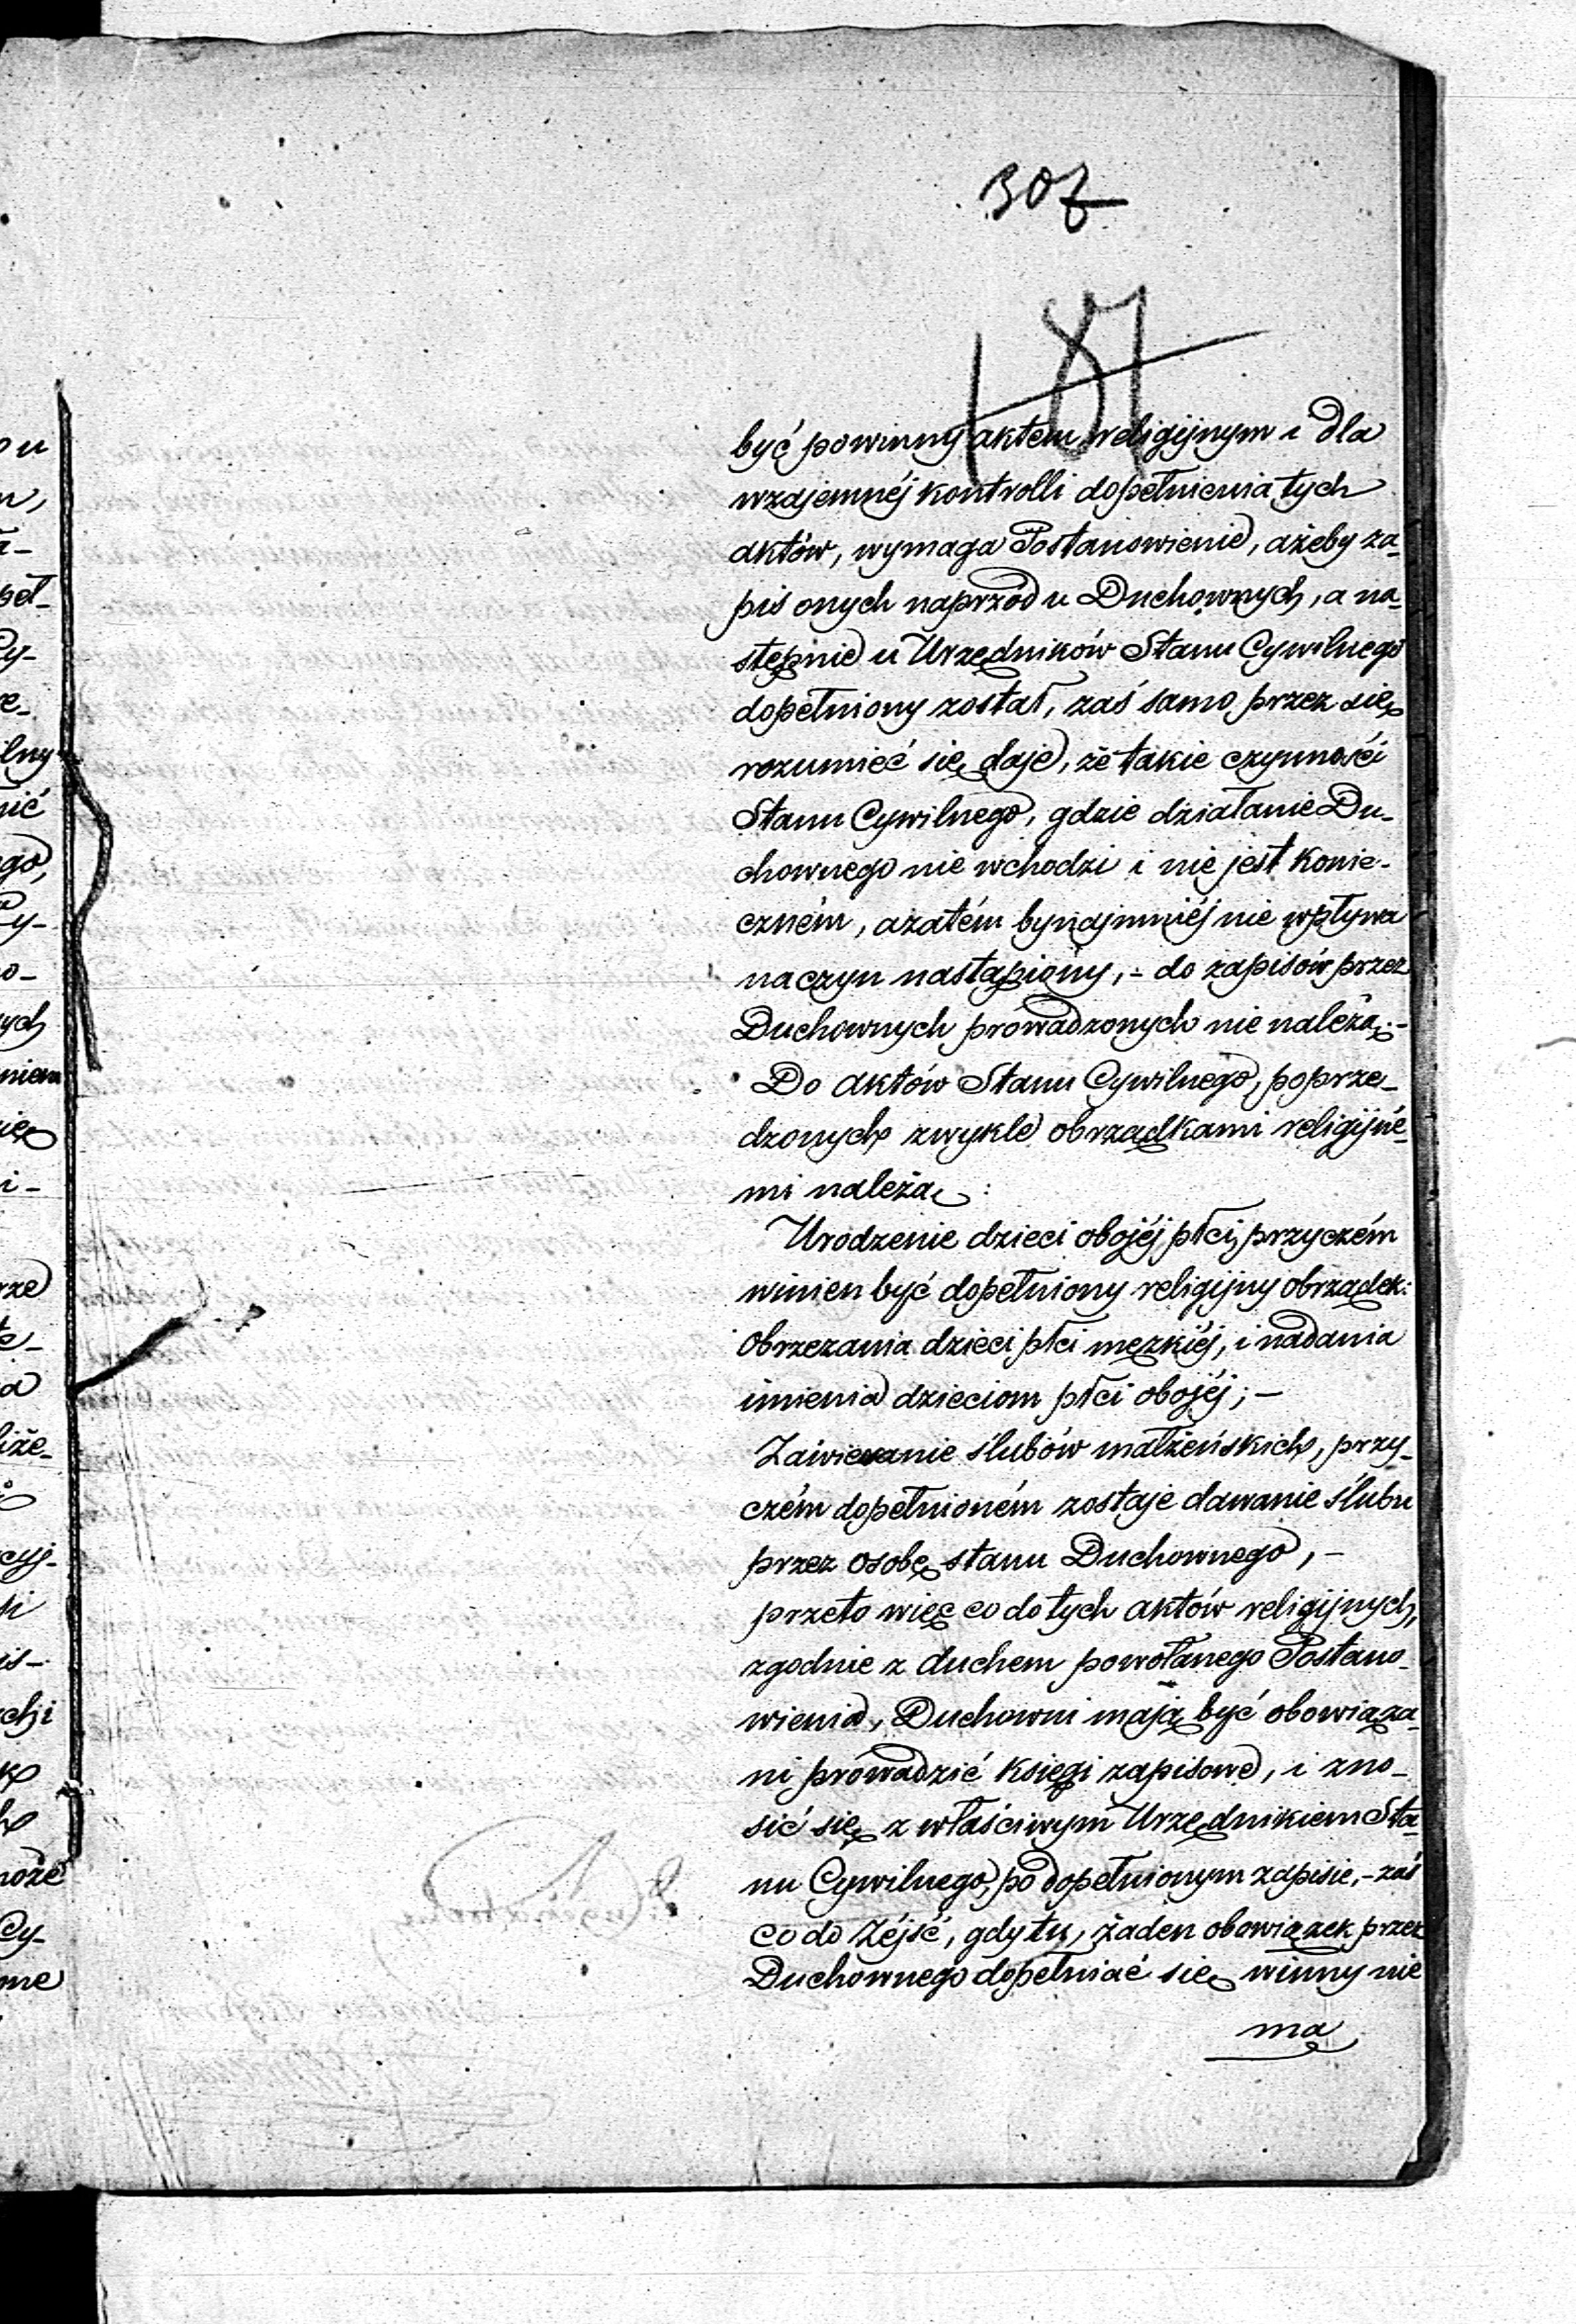 307
187
być powinny aktem religijnym i dla
wzajemnéj kontrolli dopełnienia tych
aktów, wymaga Postanowienie, ażeby za-
pis onych naprzód u Duchownych, a na-
stępnie u Urzędników Stanu Cywilnego
dopełniony został, zaś samo przez się
rozumieć się daje, że takie czynności
Stanu Cywilnego, gdzie działanie Du-
chownego nie wchodzi i nie jest konie-
czném, azatém bynajmniéj nie wpływa
na czyn nastąpiony, - do zapisów przez
Duchownych prowadzonych nie należą. -
Do aktów Stanu Cywilnego, poprze-
dzonych zwykle obrządkami religijne-
mi należą :
Urodzenie dzieci obojéj płci, przyczém
winien być dopełniony religijny obrządek:
obrzezania dzieci płci męzkiéj, i nadania
imienia dzieciom płci obojéj; -
Zawieranie ślubów małżeńskich, przy-
czém dopełnioném zostaje dawanie ślubu
przez osobę stanu Duchownego, -
przeto więc co do tych aktów religijnych,
zgodnie z duchem powołanego Postano-
wienia, Duchowni mają być obowiąza-
ni prowadzić księgi zapisowe, i zno-
sić się z właściwym Urzędnikiem Sta-
nu Cywilnego, po dopełnionym zapisie, - zaś
co do Zejść, gdy tu, żaden obowiązek przez
Duchownego dopełniać się winny nie
ma